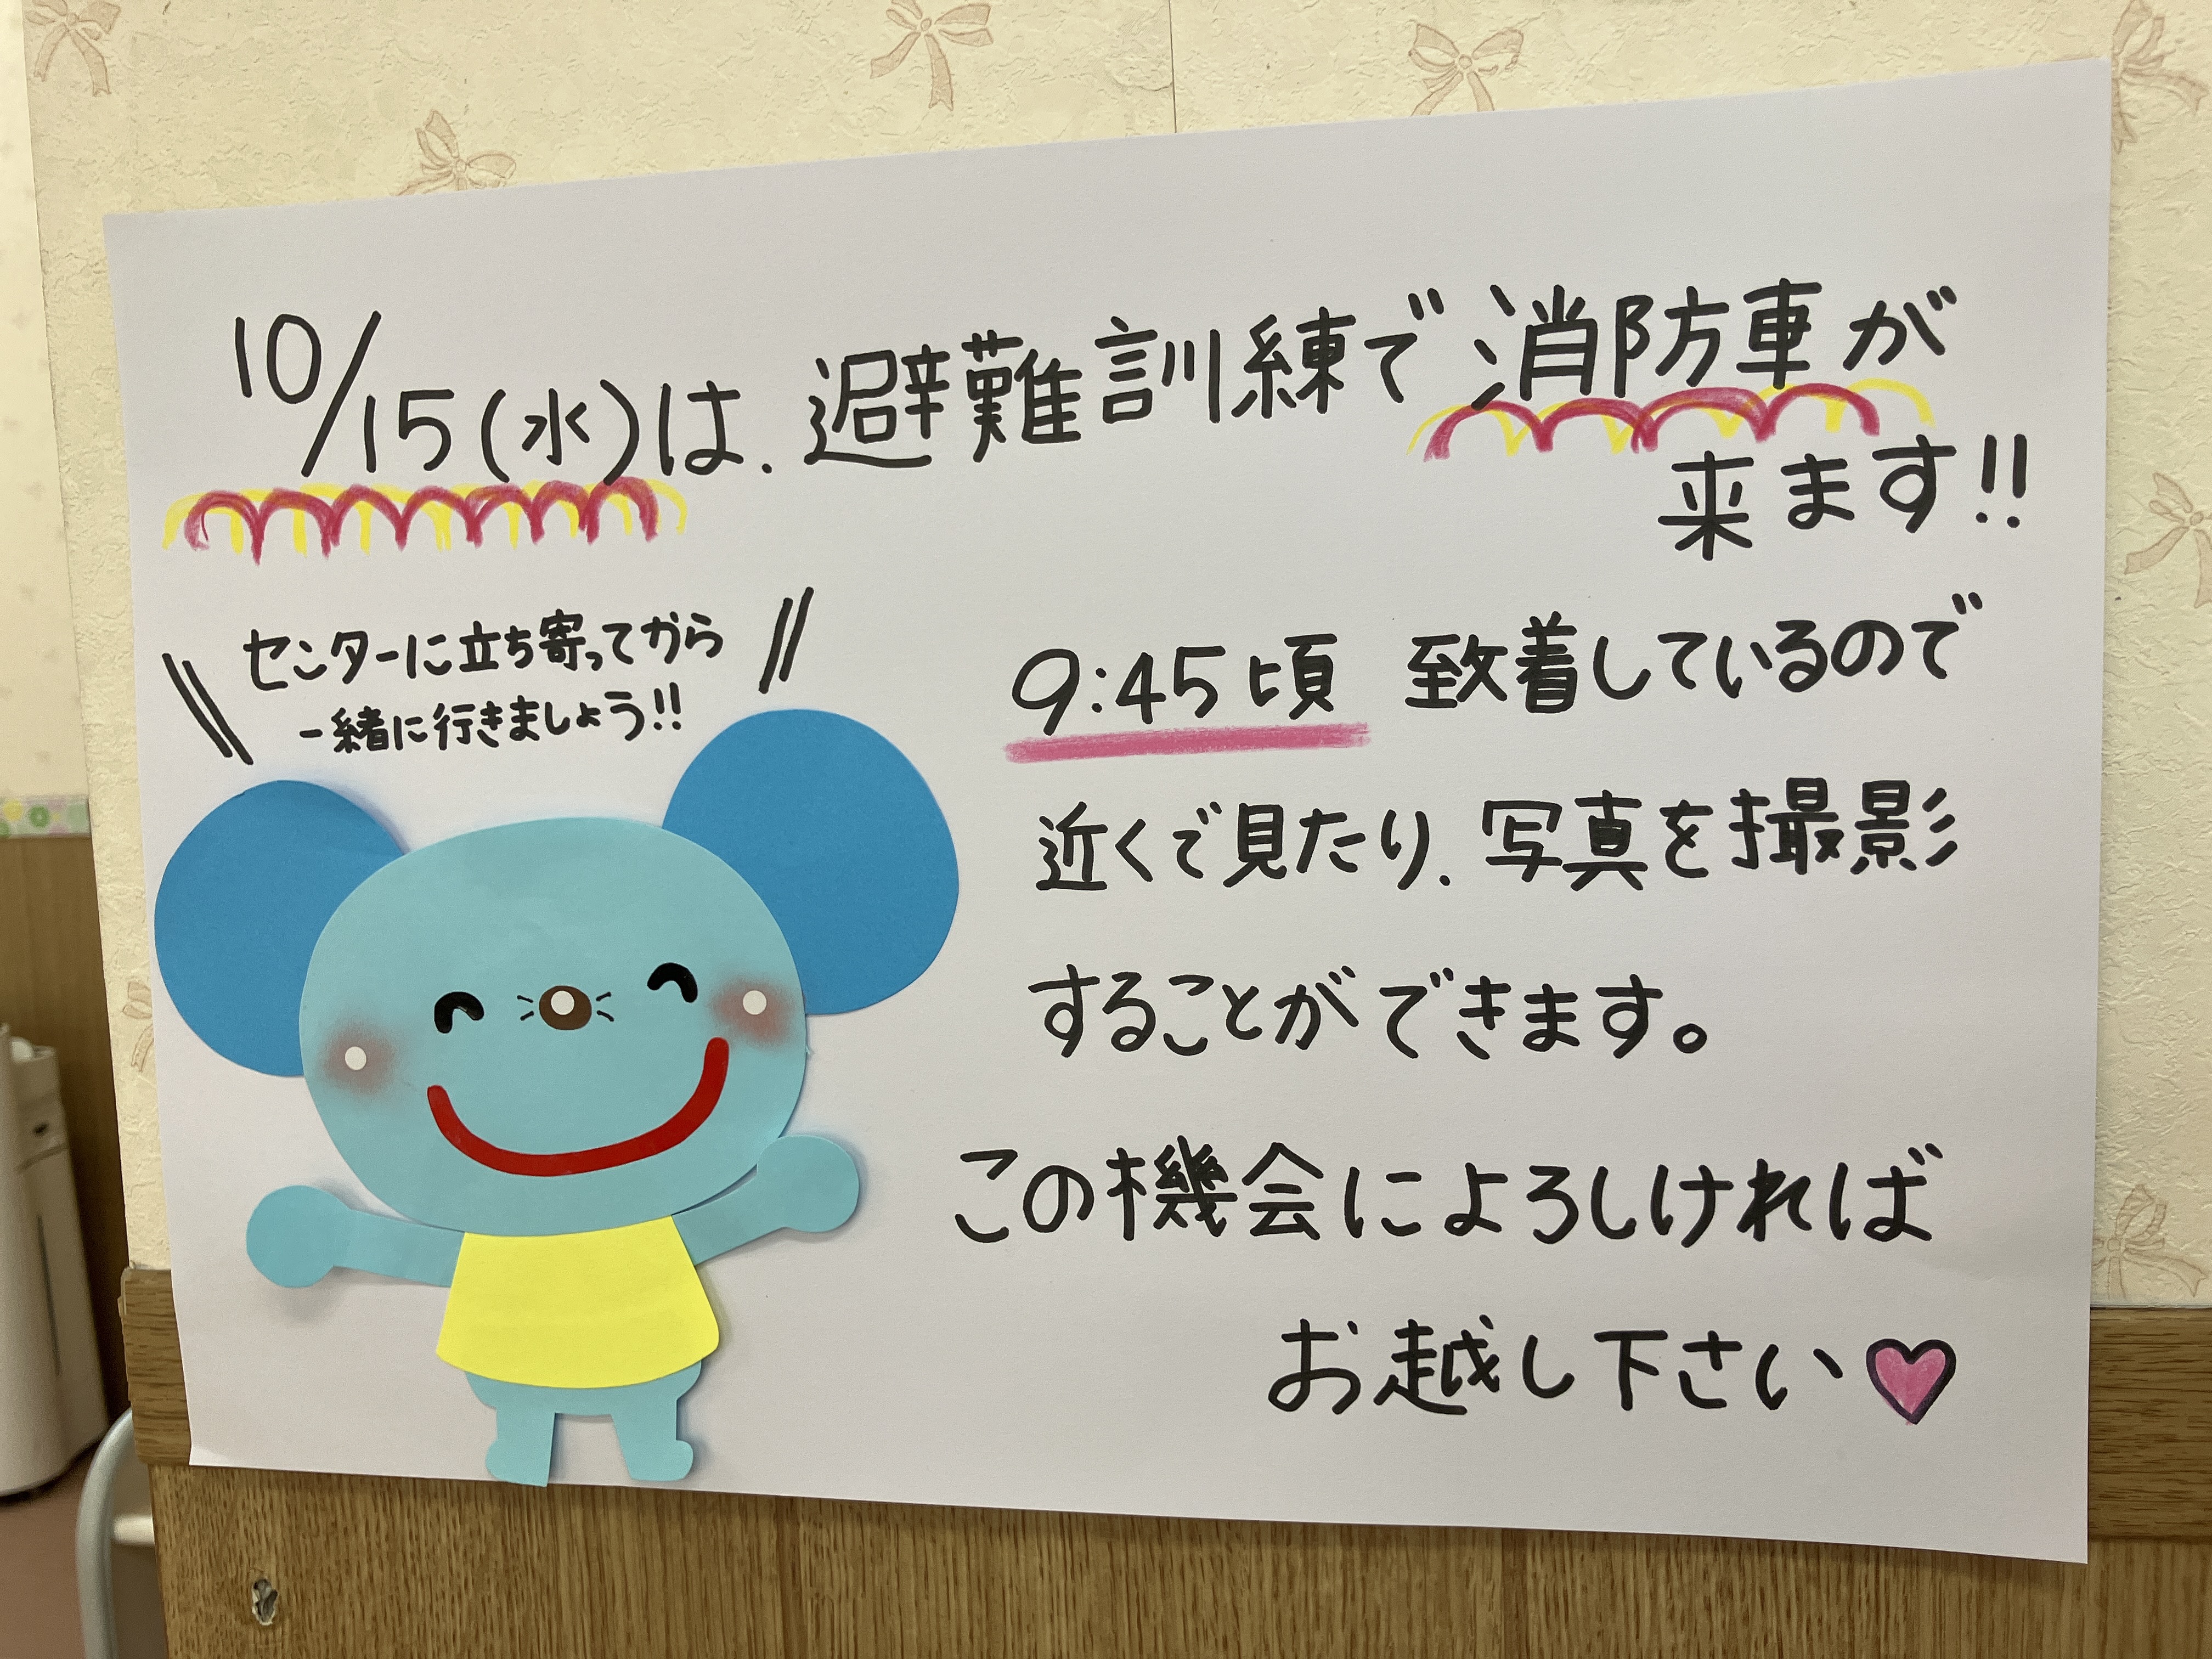 10/15(水)は、避難訓練で消防車が
来ます!!
センターに立ち寄ってから
一緒に行きましょう!!
9:45頃 致着しているので
近くで見たり、写真を撮影
することができます。
この機会によろしければ
お越し下さい♥